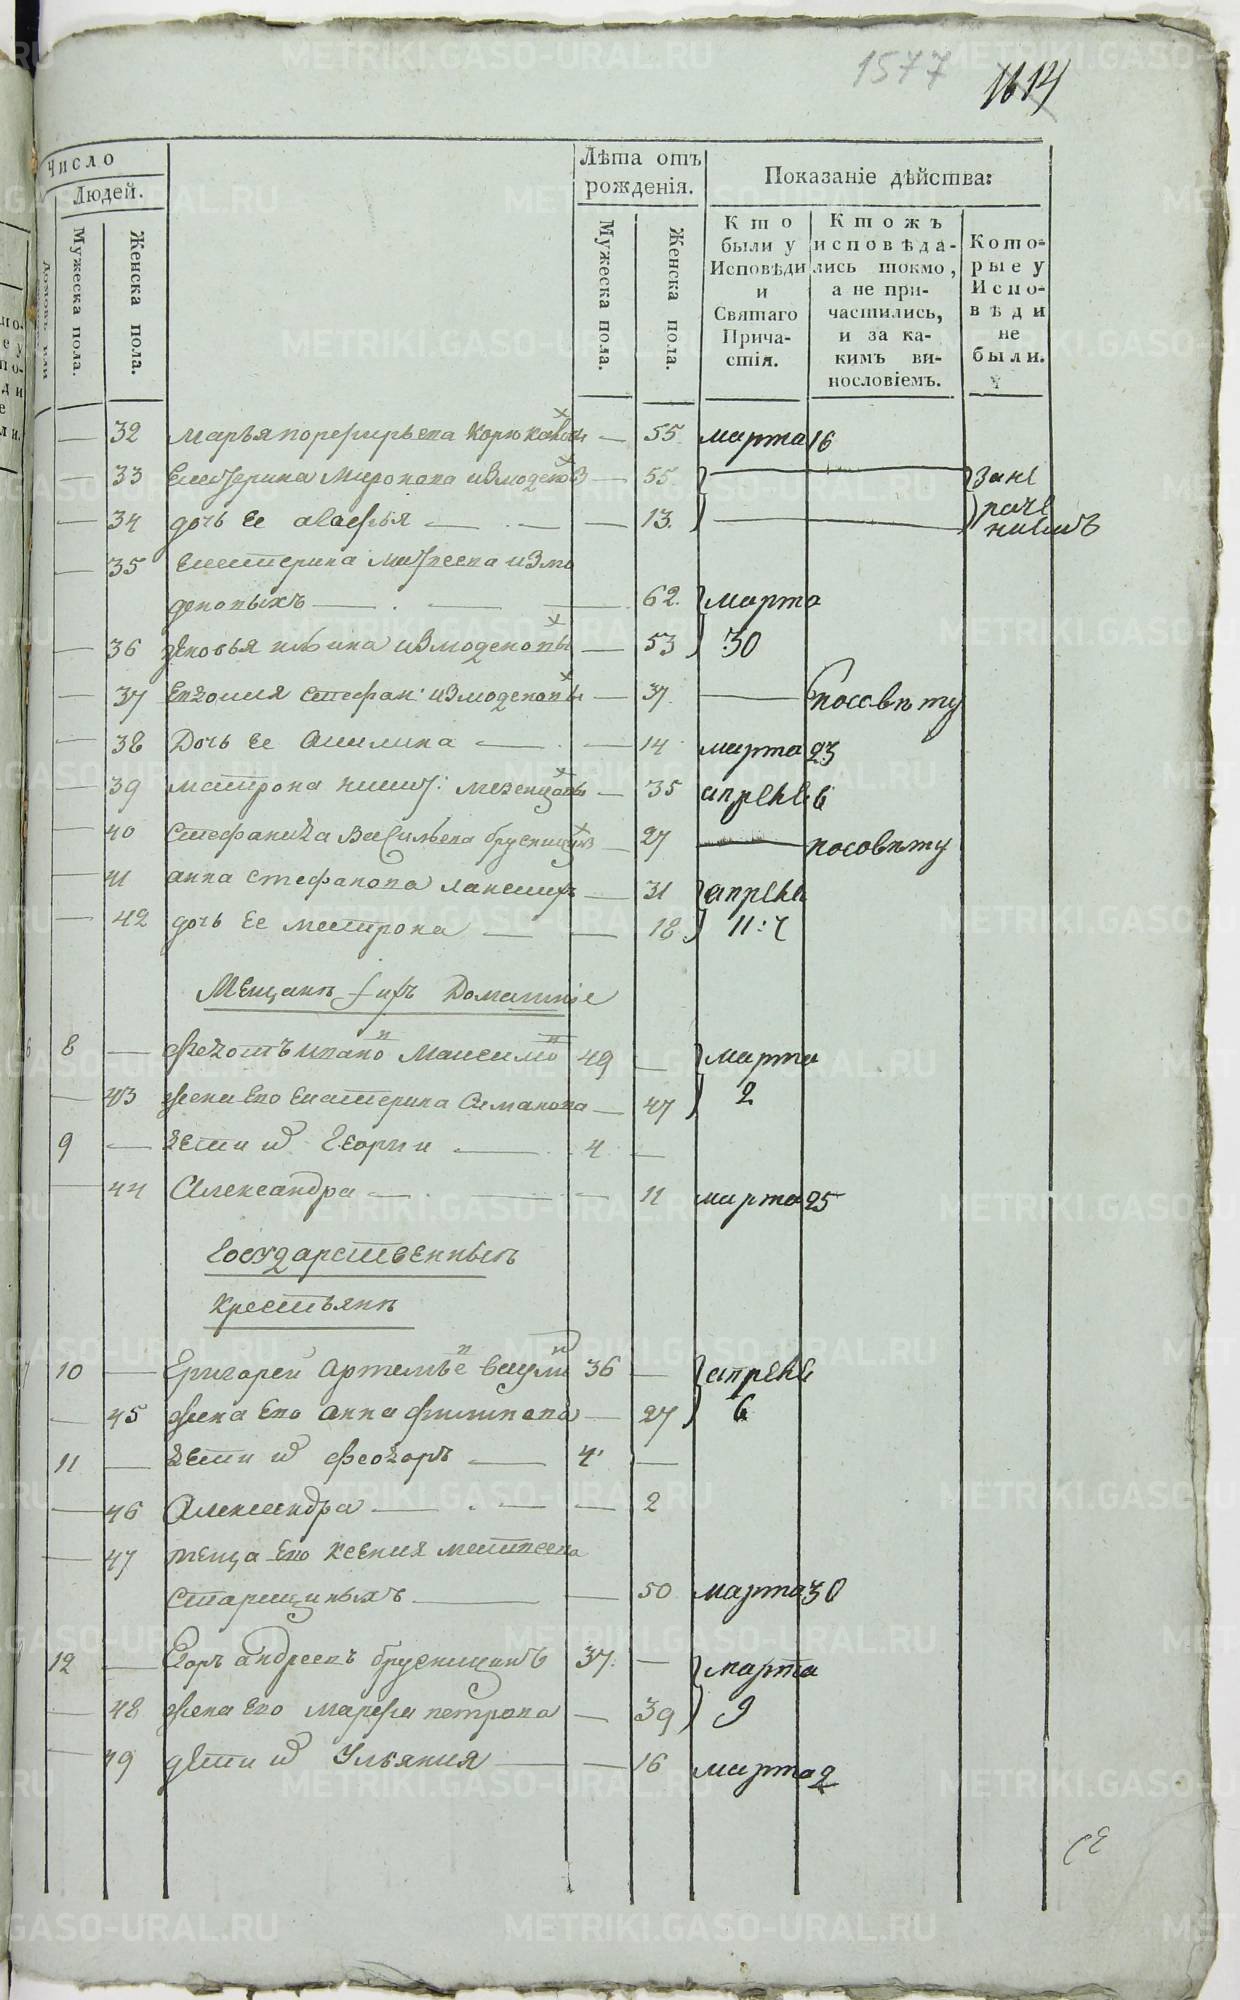 1577
1614
Число
Людей.
Мужеска пола.
Женска пола.
Лѣта отъ
рожденія.
Мужеска пола.
Женска пола.
Показаніе дѣйства:
Кто
были у
Исповѣди
и
Святаго
Прича-
стія.
Ктожъ
исповѣда-
лись токмо,
а не при-
частились,
и за ка-
кимъ ви-
нословіемъ.
Кото-
рые у
Испо-
вѣди
не
были.
— 32 марья порфирьева — 55 марта 16
— 33 Екатерина Миронова — 55
— 34 дочь Ее агафья — 13
зане
раче
ниемъ
— 35 Екатерина матвеева измо
деновыхъ — 62 марта
— 36 зиновья — 53 30
— 37 Евдокия стефан: измоденовы — 37 — посовѣту
— 38 Дочь Ее Акилина — 14 марта 23
— 39 матрона никит: мезенцовы — 35 апреля 6
— 40 Стефанида Васильева брусницын — 27 — посовѣту
— 41 анна стефанова — 31 апреля
— 42 дочь Ее матрона — 18 11: ч
Мещанъ и ихъ Домашніе
8 — федотъ ивановъ Максимовъ 49 — марта
— 43 жена Его Екатерина Симанова — 47 2
9 — дети их Георги — 4 —
— 44 Александра — 11 марта 25
Государственныхъ
крестьянъ
10 — Григорей Артемьевъ 36 — апреля
— 45 жена Его анна филипова — 27 6
11 — дети их феодоръ — 4 —
— 46 Александра — 2
— 47 теща Его Ксения матвеева
Старицыныхъ — 50 марта 30
12 — Егоръ андреевъ брусницынъ 37 — марта
— 48 жена Его марфа петрова — 39 9
— 49 дети их Ульяния — 16 марта 2